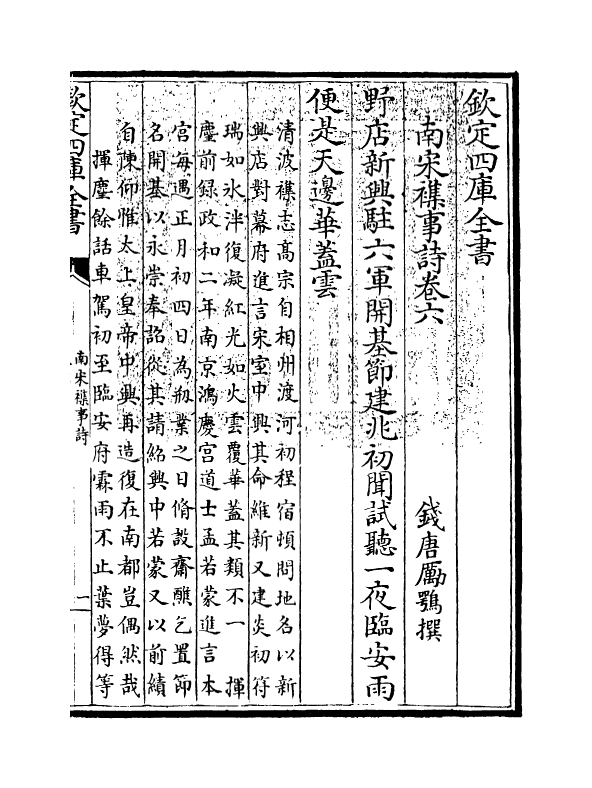 欽定四庫全書
南宋襍事詩卷六
錢唐厲鶚撰
野店新興駐六軍開基節建兆初聞試聽一夜臨安雨
便是天邊華蓋雲
清波襍志高宗自相州渡河初程宿頓問地名以新
興店對幕府進言宋室中興其命維新又建炎初符
瑞如氷泮復凝紅光如火雲覆華蓋其類不一　揮
麈前録政和二年南京鴻慶宫道士孟若蒙進言本
宫每遇正月初四日為剏業之日脩設齋醮乞置節
名開基以永崇奉詔從其請紹興中若蒙又以前績
自陳仰惟太上皇帝中興再造復在南都豈偶然哉
揮麈餘話車駕初至臨安府霖雨不止葉夢得等
欽定四庫全書
南宋襍事詩
一